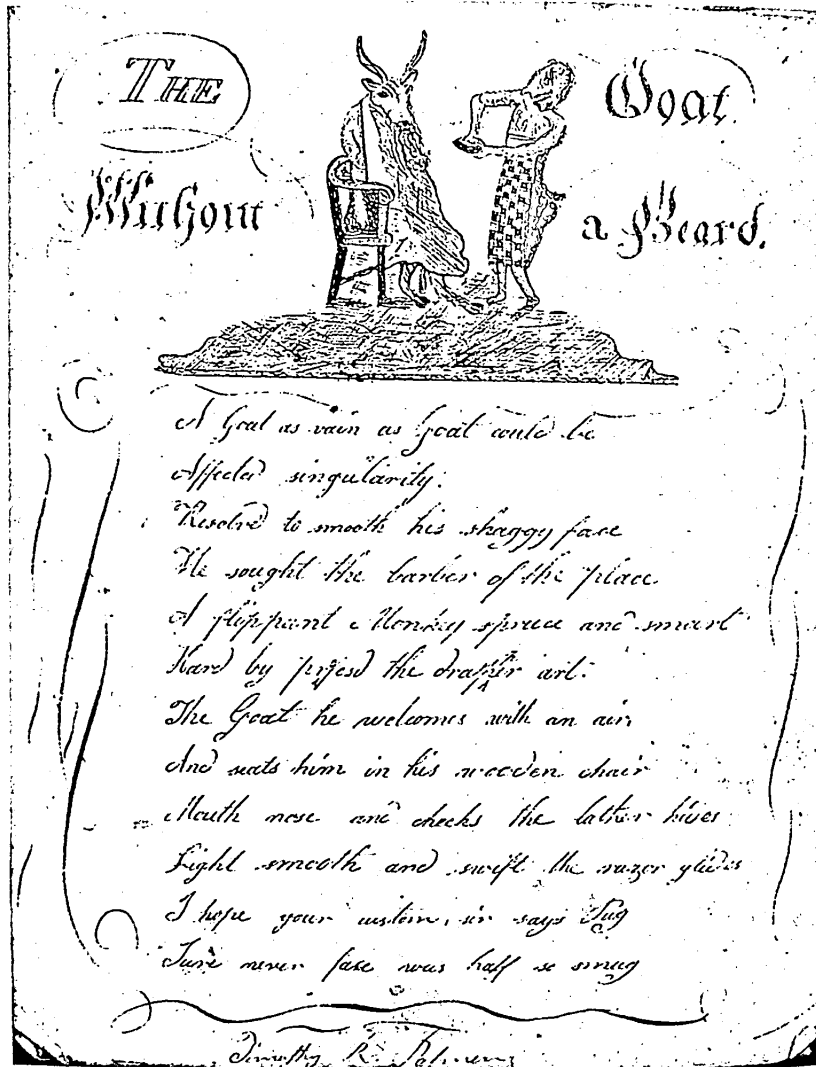 THE Goat
Without a Beard.
A Goat as vain as Goat could be
Affected singularity.
Resolved to smooth his shaggy face
He sought the barber of the place
A flippant Monkey spruce and smart
Hard by the art.
The Goat he welcomes with an air,
And seats him in his wooden chair
Mouth nose and cheeks the lather hides
Light smooth and swift the razor glides
I hope your custom, sir says Pug
Sure never face was half so smug
Timothy R. Palmer